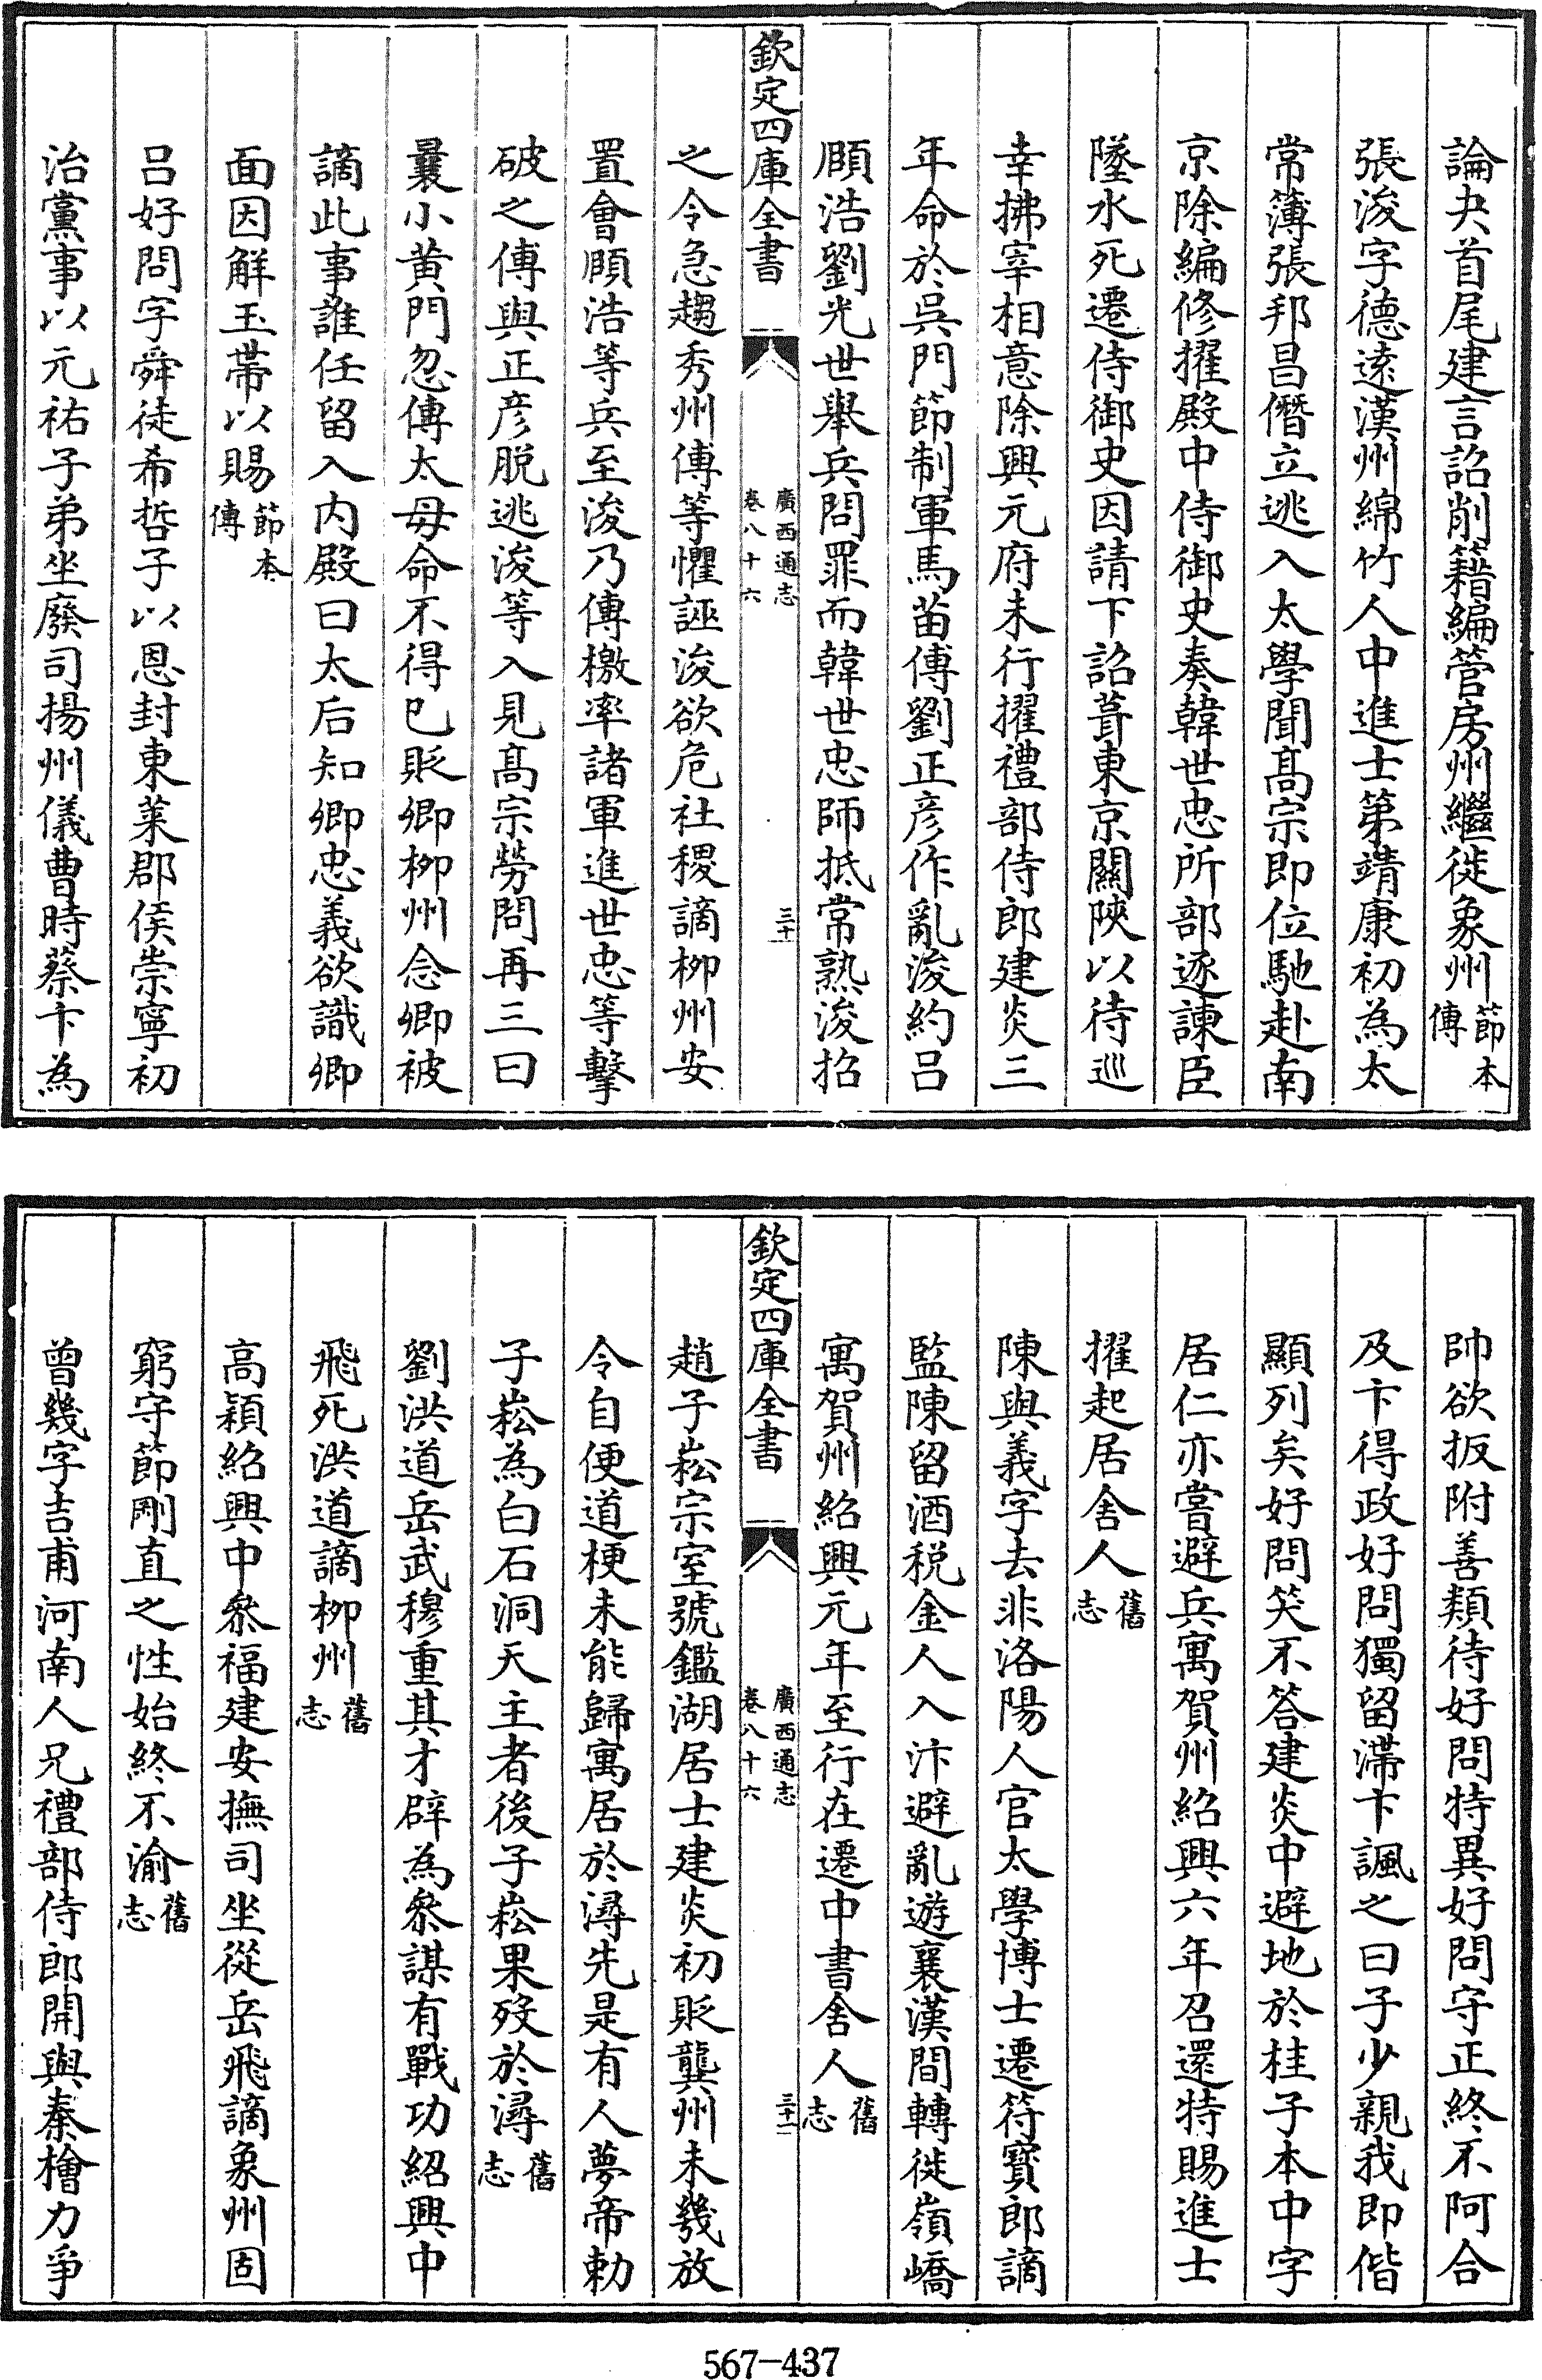 論夬首尾建言詔削籍編管房州繼徙象州節本傳
張浚字德遠漢州綿竹人中進士第靖康初為太
常簿張邦昌僭立逃入太學聞髙宗即位馳赴南
京除編修擢殿中侍御史奏韓世忠所部逐諫臣
墜水死遷侍御史因請下詔葺東京關陜以待巡
幸拂宰相意除興元府未行擢禮部侍郎建炎三
年命於吳門節制軍馬苗傅劉正彦作亂浚約呂
頤浩劉光世舉兵問罪而韓世忠師抵常熟浚招
欽定四庫全書
廣西通志
卷八十六
三十一
之令急趨秀州傅等懼誣浚欲危社稷謫栁州安
置會頤浩等兵至浚乃傳檄率諸軍進世忠等擊
破之傅與正彦脱逃浚等入見髙宗勞問再三曰
曩小黄門忽傳太母命不得已貶卿栁州念卿被
謫此事誰任留入内殿曰太后知卿忠義欲識卿
面因解玉帶以賜節本傳
呂好問字舜徒希哲子以恩封東萊郡侯崇寧初
治黨事以元祐子弟坐廢司揚州儀曹時蔡卞為
帥欲扳附善類待好問特異好問守正終不阿合
及卞得政好問獨留滯卞諷之曰子少親我即偕
顯列矣好問笑不答建炎中避地於桂子本中字
居仁亦嘗避兵寓賀州紹興六年召還特賜進士
擢起居舍人舊志
陳與義字去非洛陽人官太學博士遷符寶郎謫
監陳留酒税金人入汴避亂遊襄漢間轉徙嶺嶠
寓賀州紹興元年至行在遷中書舍人舊志
欽定四庫全書
廣西通志
卷八十六
三十二
趙子崧宗室號鑑湖居士建炎初貶龔州未幾放
令自便道梗未能歸寓居於潯先是有人夢帝勅
子崧為白石洞天主者後子崧果歿於潯舊志
劉洪道岳武穆重其才辟為叅謀有戰功紹興中
飛死洪道謫栁州舊志
高穎紹興中叅福建安撫司坐從岳飛謫象州固
窮守節剛直之性始終不渝舊志
曾幾字吉甫河南人兄禮部侍郎開與秦檜力爭
567-437